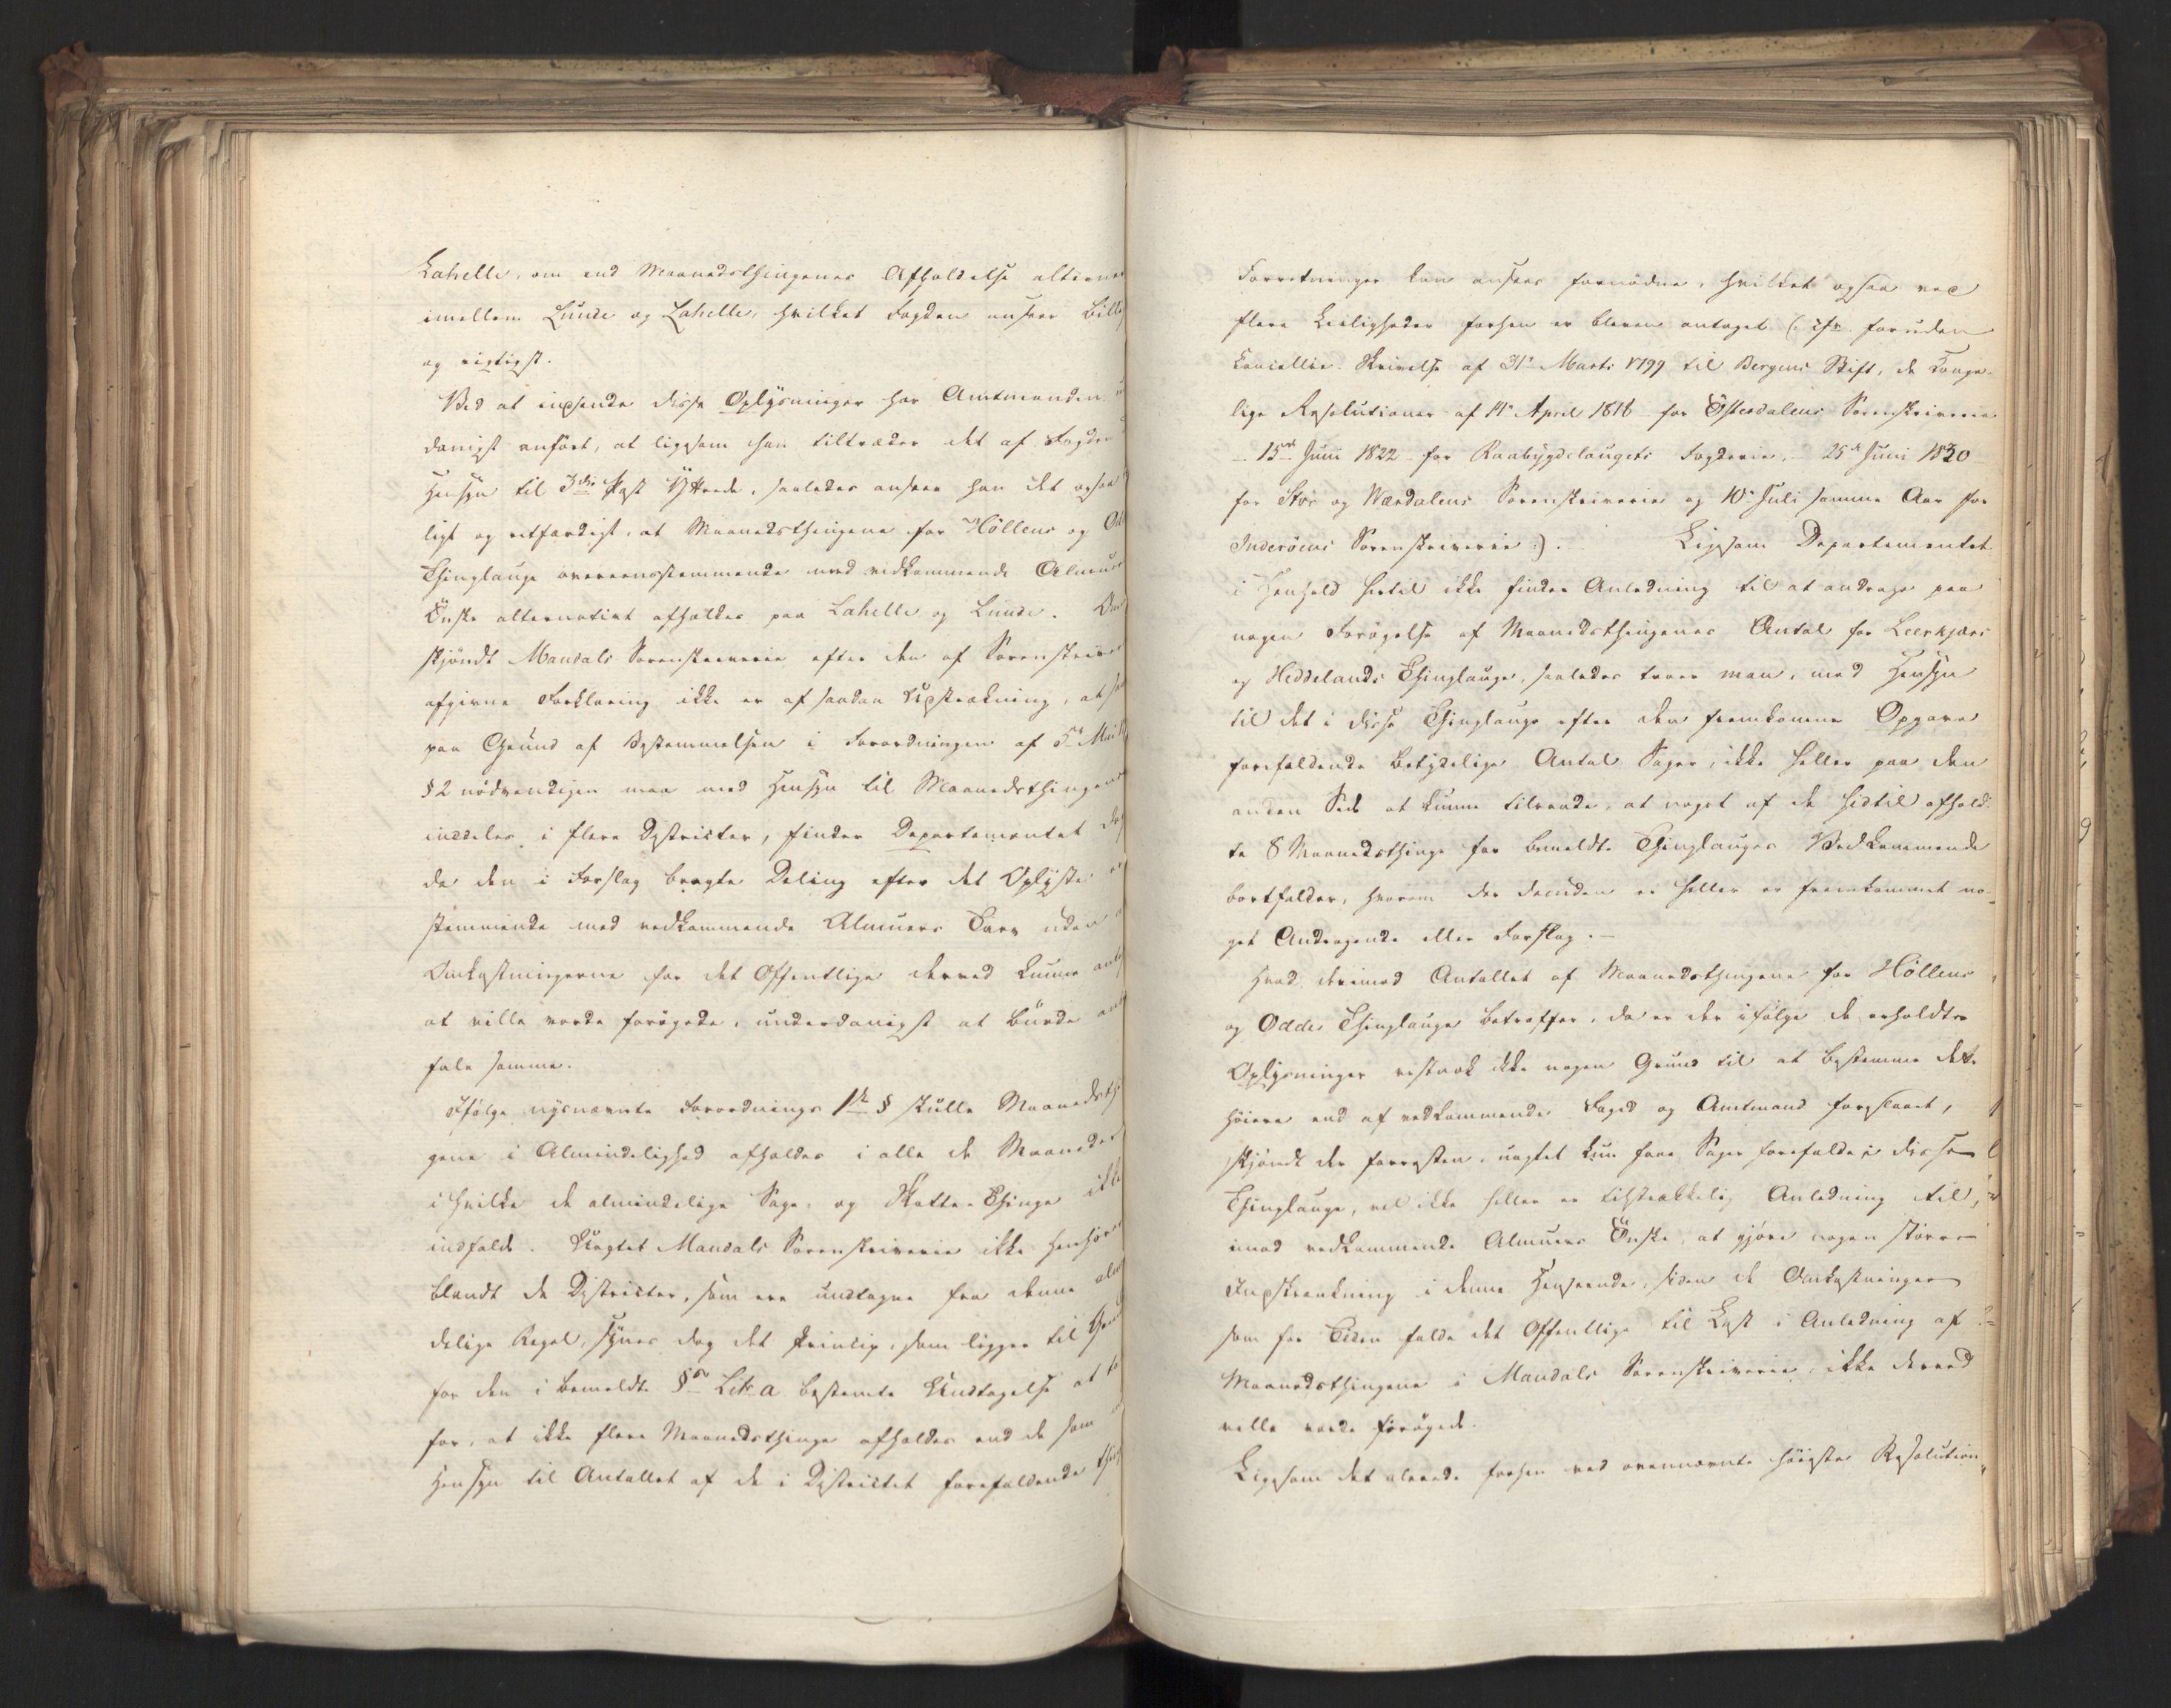 Lahelle, om end Maanedsthingenes Afholdelse alterne
imellem Lunde og Lahelle, hvilket Fogden anseer bill
og rigtigst.
Ved at indsende disse Oplysninger har Amtmanden
danigst anført, at ligesom han tiltræder det af Fogden
Hensyn til 3die Post Yttrede, saaledes anseer han det ogsaa
ligt og retfærdigt, at Maanedsthingene for Höllens og Od
Thinglauge overeensstemmende med vedkommende Almues
Önske alternativt afholdes paa Lahelle og Lunde.
skjöndt Mandals Sorenskriverie efter den af Sorenskriver
afgivne Forklaring ikke er af saadan Udstrækning, at
paa Grund af Bestemmelsen i Forordningen af 5te
§ 2 nödvendigen maa med Hensyn til Maanedsthingene
inddeles i flere Districter, finder Departementet
da den i Forslag bragte Deling efter det Oplyste
stemmende med vedkommende Almues Tarv uden
Omkostningerne for det Offentlige derved kunne
at ville vorde forögede, underdanigst at burde
fale samme.
Ifølge nysnævnte Forordnings 1ste § skulle Maanedsth
gene i Almindelighed afholdes i alle de Maaneder
i hvilke de almindelige Sage- og Skatte-Thinge ikke
indfalde. Uagtet Mandals Sorenskriverie ikke henhörer
blandt de Districter, som ere undtagne fra denne alm
delige Regel, synes dog det Princip, som ligger til
for den i bemeldte § Litr a bestemte Undtagelse at
for, at ikke flere Maanedsthinge afholdes end de som
Hensyn til Antallet af de i Districtet forefaldende
Forretninger kan ansees fornödne, hvilket ogsaa ved
flere Leiligheder forhen er bleven antaget (: cfr. foruden
Cancellie-Skrivelse af 31te Marts 1799 til Bergens Stift, de Konge-
lige Resolutioner af 14de April 1818 for Östesdalens Sorenskriverie
– 15de Juni 1822 for Raabygdelaugets Fogderie, – 25de Juni 1830
for Stör og Værdalens Sorenskriverie og 10de Juli samme Aar for
Inderöens Sorenskriverie :). Ligesom Departementet
i Henhold hertil ikke finder Anledning til at andrage paa
nogen Forögelse af Maanedsthingenes Antal for Leerkjærs
og Heddelands Thinglauge, saaledes troer man, med Hensyn
til det i disse Thinglauge efter den fremkomne Opgave
forefaldende betydelige Antal Sager, ikke heller paa den
anden Side at kunne tilraade, at noget af de hidtil afhold-
te 8 Maanedsthinge for bemeldte Thinglauges Vedkommende
bortfalder, hvorom der desuden ei heller er fremkommet no-
get Andragende eller Forslag.–
Hvad derimod Antallet af Maanedsthingene for Höllens
og Oddes Thinglauge betræffer, da er der ifölge de erholdte
Oplysninger vistnok ikke nogen Grund til at bestemme dette
höiere end af vedkommende Foged og Amtmand foreslaaet,
skjöndt der forresten, uagtet kun faae Sager forefalde i disse
Thinglauge, vel ikke heller er tilstrækkelig Anledning til,
imod vedkommende Almues Önske, at gjöre nogen större
Indskrænkning i denne Henseende, siden de Omkostninger
som for Tiden falde det Offentlige til Last i Anledning af
Maanedsthingene i Mandals Sorenskriverie, ikke derved
ville vorde forögede.
Ligesom det allerede forhen ved ovennævnte höieste Resolution